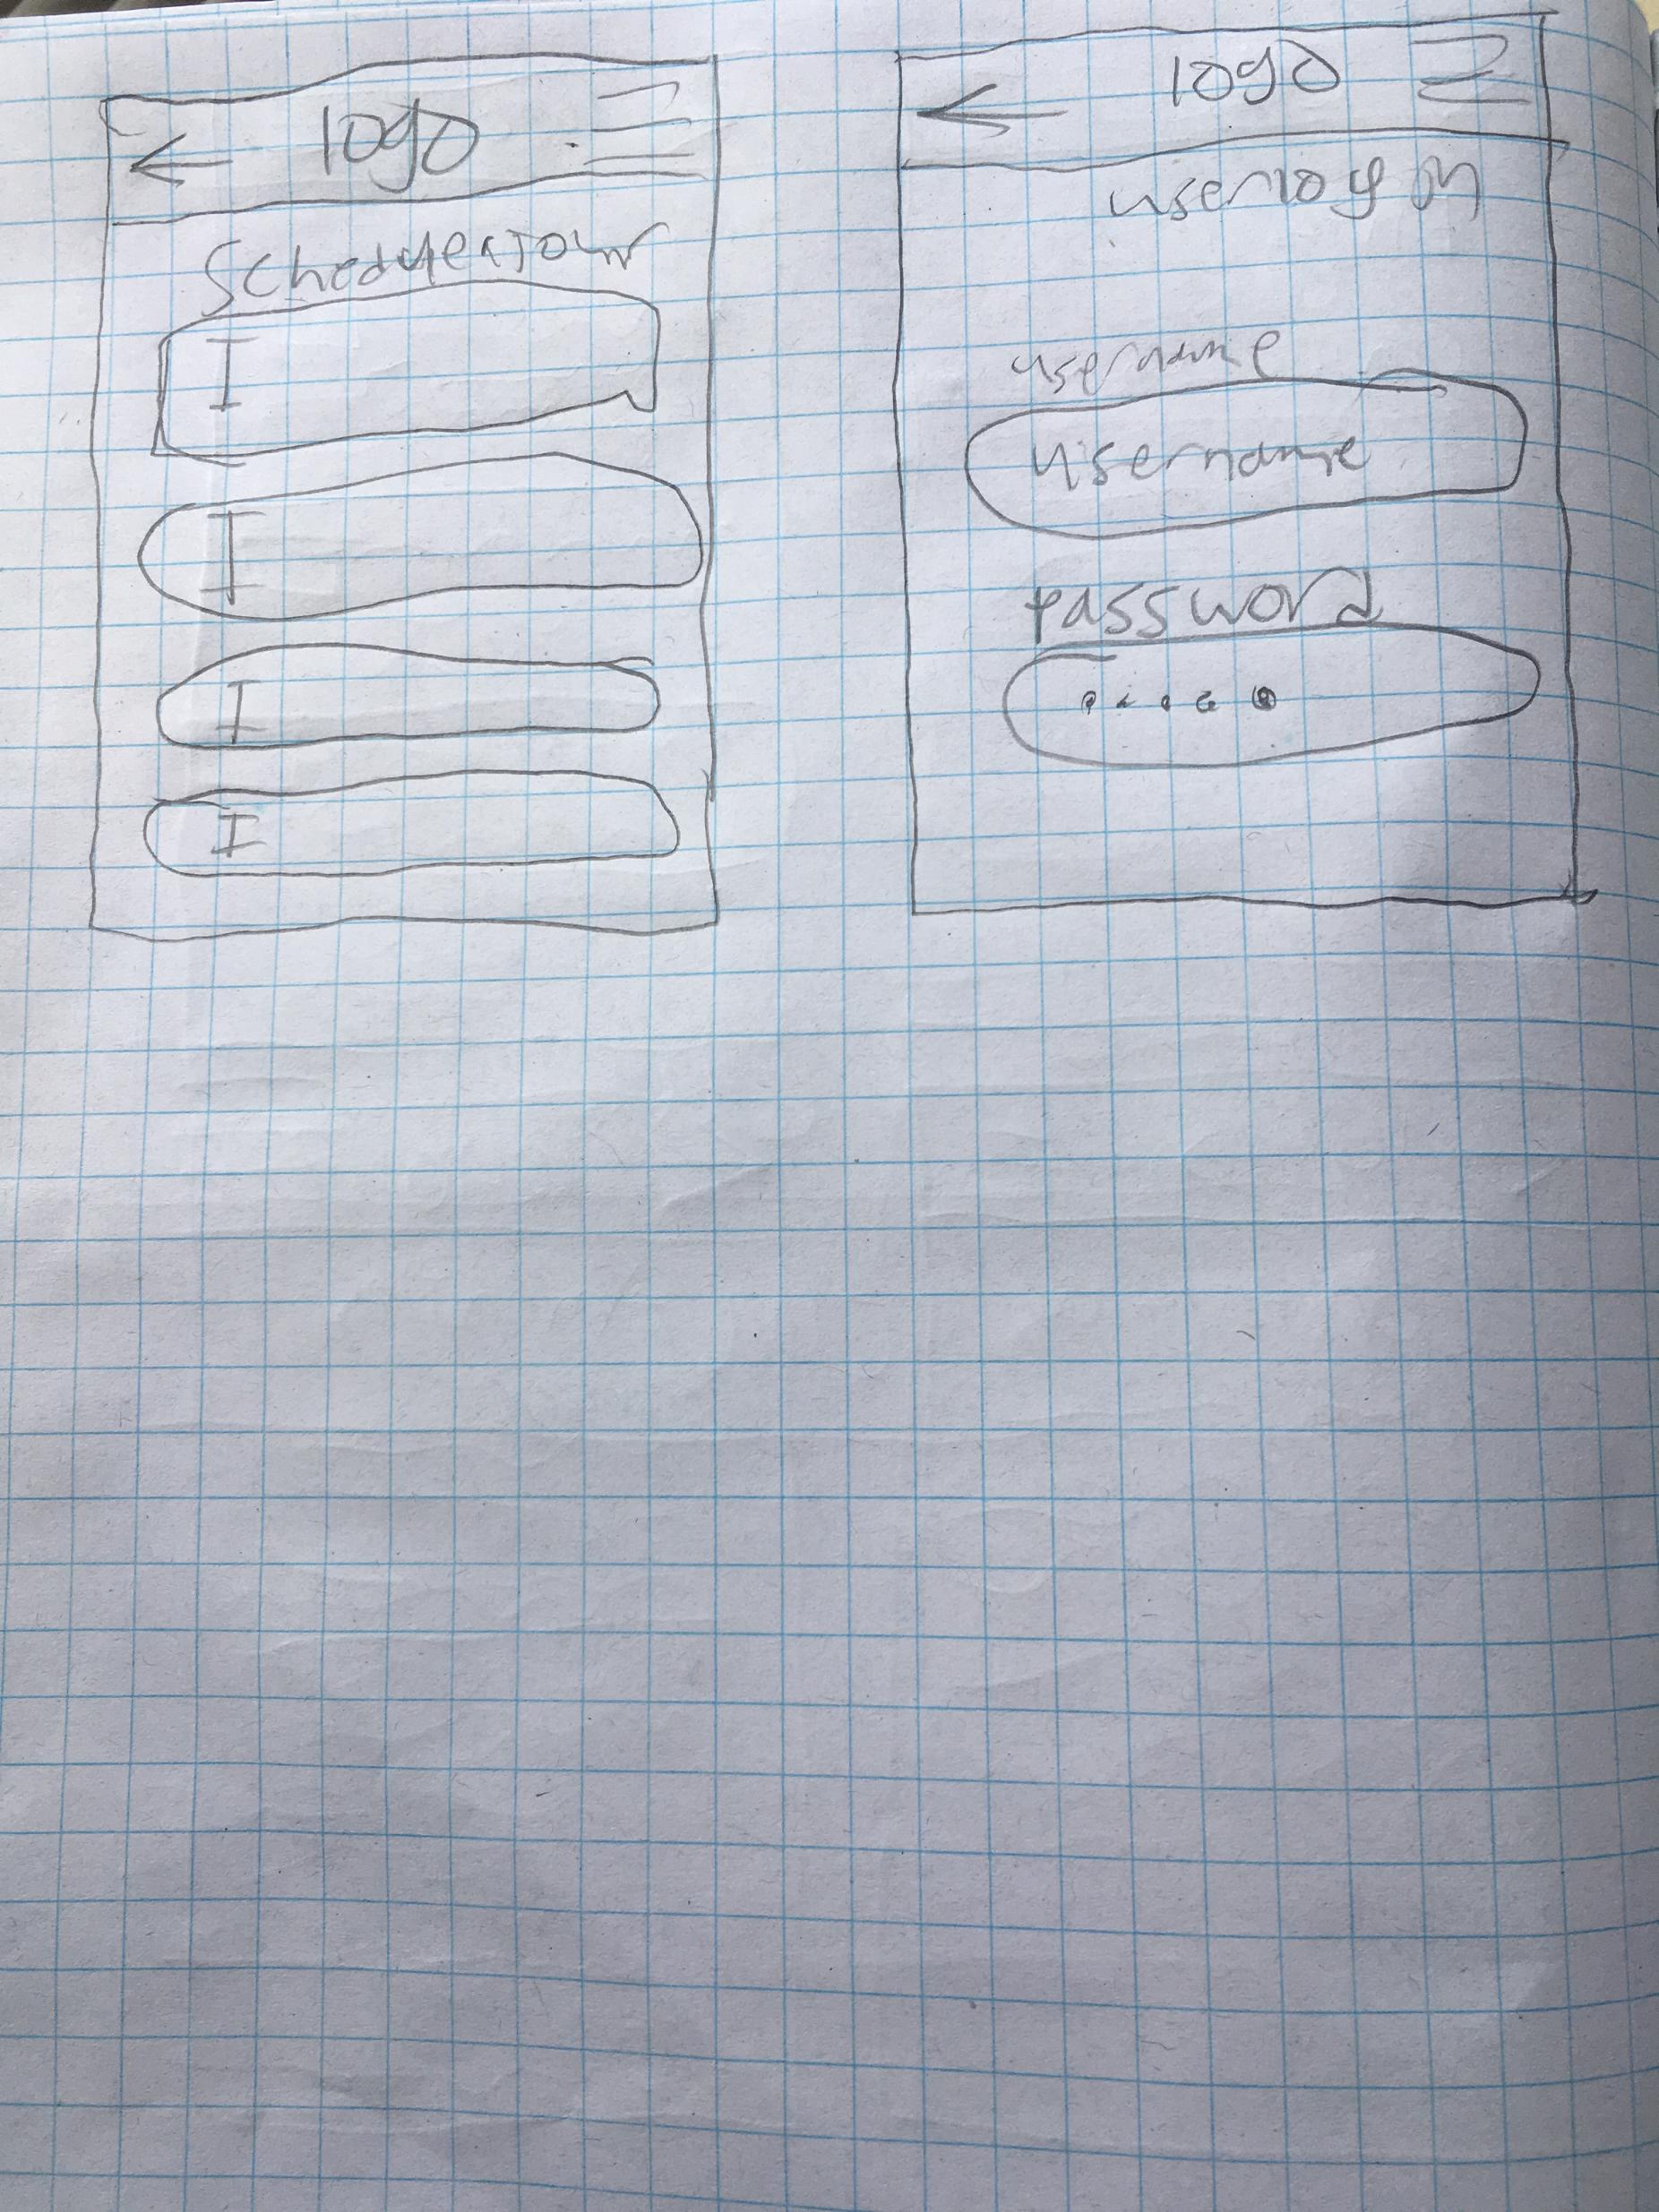 logo
schedule a tour
I
I
I
I
logo
user log in
username
username
password